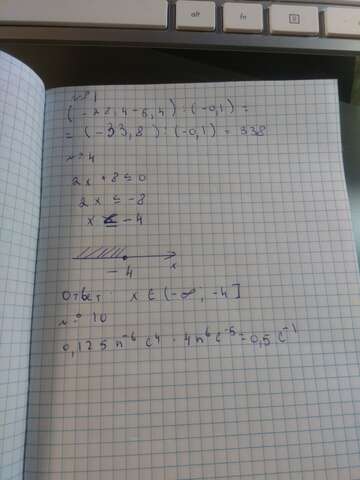 alt
fn
(-28,4-5,4) : (-0,1) =
= (-33,8) : (-0,1) = 338
№ 4
2x + 8 ≤ 0
2x ≤ -8
x ≤ -4
-4
x
Ответ: x ∈ (-∞, -4]
№ 10
0,125 n⁻⁶ c⁴ · 4n⁶ c⁻⁵ = 0,5 c⁻¹